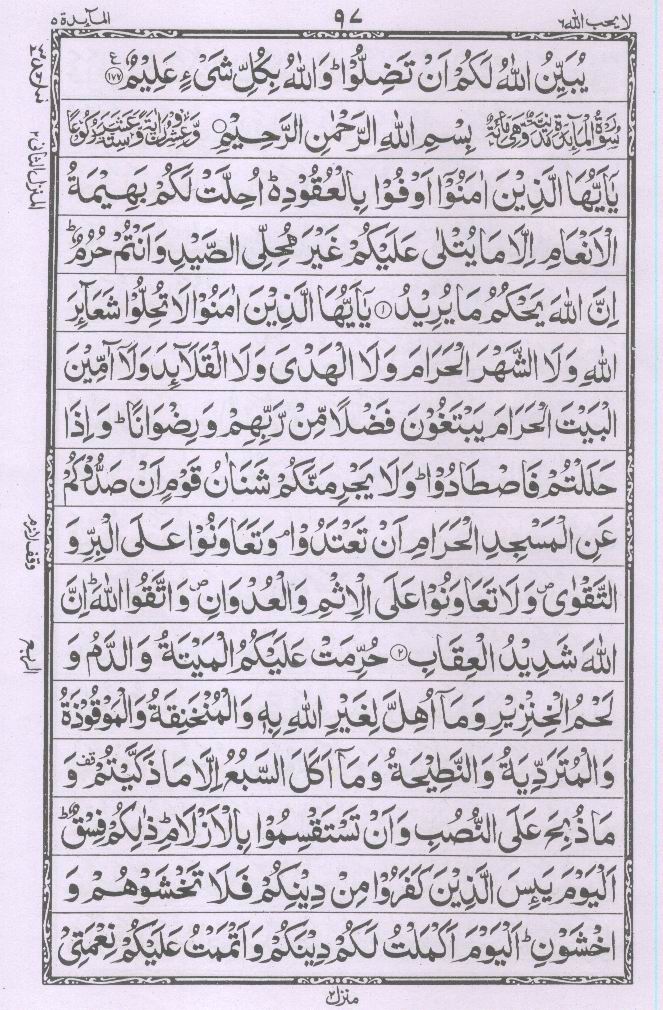 لا یحب اللہ ٦
٩٧
المآىِٕدة ٥
یُبَیِّنُ اللّٰهُ لَكُمْ اَنْ تَضِلُّوْا ؕ وَ اللّٰهُ بِكُلِّ شَیْءٍ عَلِیْمٌ ۧ﴿۱۷۶﴾
سُوْرَةُ الْمَآىِٕدَةِ مَدَنِیَّةٌ وَّ هِیَ مِائَةٌ بِسْمِ اللّٰهِ الرَّحْمٰنِ الرَّحِیْمِ وَّ عِشْرُوْنَ اٰیَةً وَّ سِتَّةَ عَشَرَ رُكُوْعًا
یٰۤاَیُّهَا الَّذِیْنَ اٰمَنُوْۤا اَوْفُوْا بِالْعُقُوْدِ ؕ اُحِلَّتْ لَكُمْ بَهِیْمَةُ
الْاَنْعَامِ اِلَّا مَا یُتْلٰی عَلَیْكُمْ غَیْرَ مُحِلِّی الصَّیْدِ وَ اَنْتُمْ حُرُمٌ ؕ
اِنَّ اللّٰهَ یَحْكُمُ مَا یُرِیْدُ ﴿۱﴾ یٰۤاَیُّهَا الَّذِیْنَ اٰمَنُوْا لَا تُحِلُّوْا شَعَآىِٕرَ
اللّٰهِ وَ لَا الشَّهْرَ الْحَرَامَ وَ لَا الْهَدْیَ وَ لَا الْقَلَآىِٕدَ وَ لَاۤ آٰمِّیْنَ
الْبَیْتَ الْحَرَامَ یَبْتَغُوْنَ فَضْلًا مِّنْ رَّبِّهِمْ وَ رِضْوَانًا ؕ وَ اِذَا
حَلَلْتُمْ فَاصْطَادُوْا ؕ وَ لَا یَجْرِمَنَّكُمْ شَنَاٰنُ قَوْمٍ اَنْ صَدُّوْكُمْ
عَنِ الْمَسْجِدِ الْحَرَامِ اَنْ تَعْتَدُوْا ۘ وَ تَعَاوَنُوْا عَلَی الْبِرِّ وَ
التَّقْوٰی ۪ وَ لَا تَعَاوَنُوْا عَلَی الْاِثْمِ وَ الْعُدْوَانِ ۪ وَ اتَّقُوا اللّٰهَ ؕ اِنَّ
اللّٰهَ شَدِیْدُ الْعِقَابِ ﴿۲﴾ حُرِّمَتْ عَلَیْكُمُ الْمَیْتَةُ وَ الدَّمُ وَ
لَحْمُ الْخِنْزِیْرِ وَ مَاۤ اُهِلَّ لِغَیْرِ اللّٰهِ بِهٖ وَ الْمُنْخَنِقَةُ وَ الْمَوْقُوْذَةُ
وَ الْمُتَرَدِّیَةُ وَ النَّطِیْحَةُ وَ مَاۤ اَكَلَ السَّبُعُ اِلَّا مَا ذَكَّیْتُمْ ۫ وَ
مَا ذُبِحَ عَلَی النُّصُبِ وَ اَنْ تَسْتَقْسِمُوْا بِالْاَزْلَامِ ؕ ذٰلِكُمْ فِسْقٌ ؕ
اَلْیَوْمَ یَىِٕسَ الَّذِیْنَ كَفَرُوْا مِنْ دِیْنِكُمْ فَلَا تَخْشَوْهُمْ وَ
اخْشَوْنِ ؕ اَلْیَوْمَ اَكْمَلْتُ لَكُمْ دِیْنَكُمْ وَ اَتْمَمْتُ عَلَیْكُمْ نِعْمَتِیْ
المنزل الثانی ٢
وقف لازم
الربع
منزل ٢